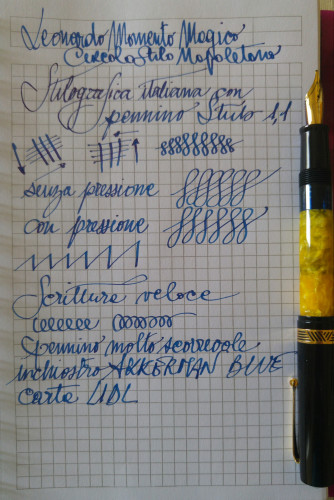 Leonardo Momento Magico
Circolo Stilo Napoletano
Stilografica italiana con
pennino Stub 1,1
senza pressione
con pressione
Scrittura veloce
pennino molto scorrevole
inchiostro AKKERMAN BLUE
carta LIDL